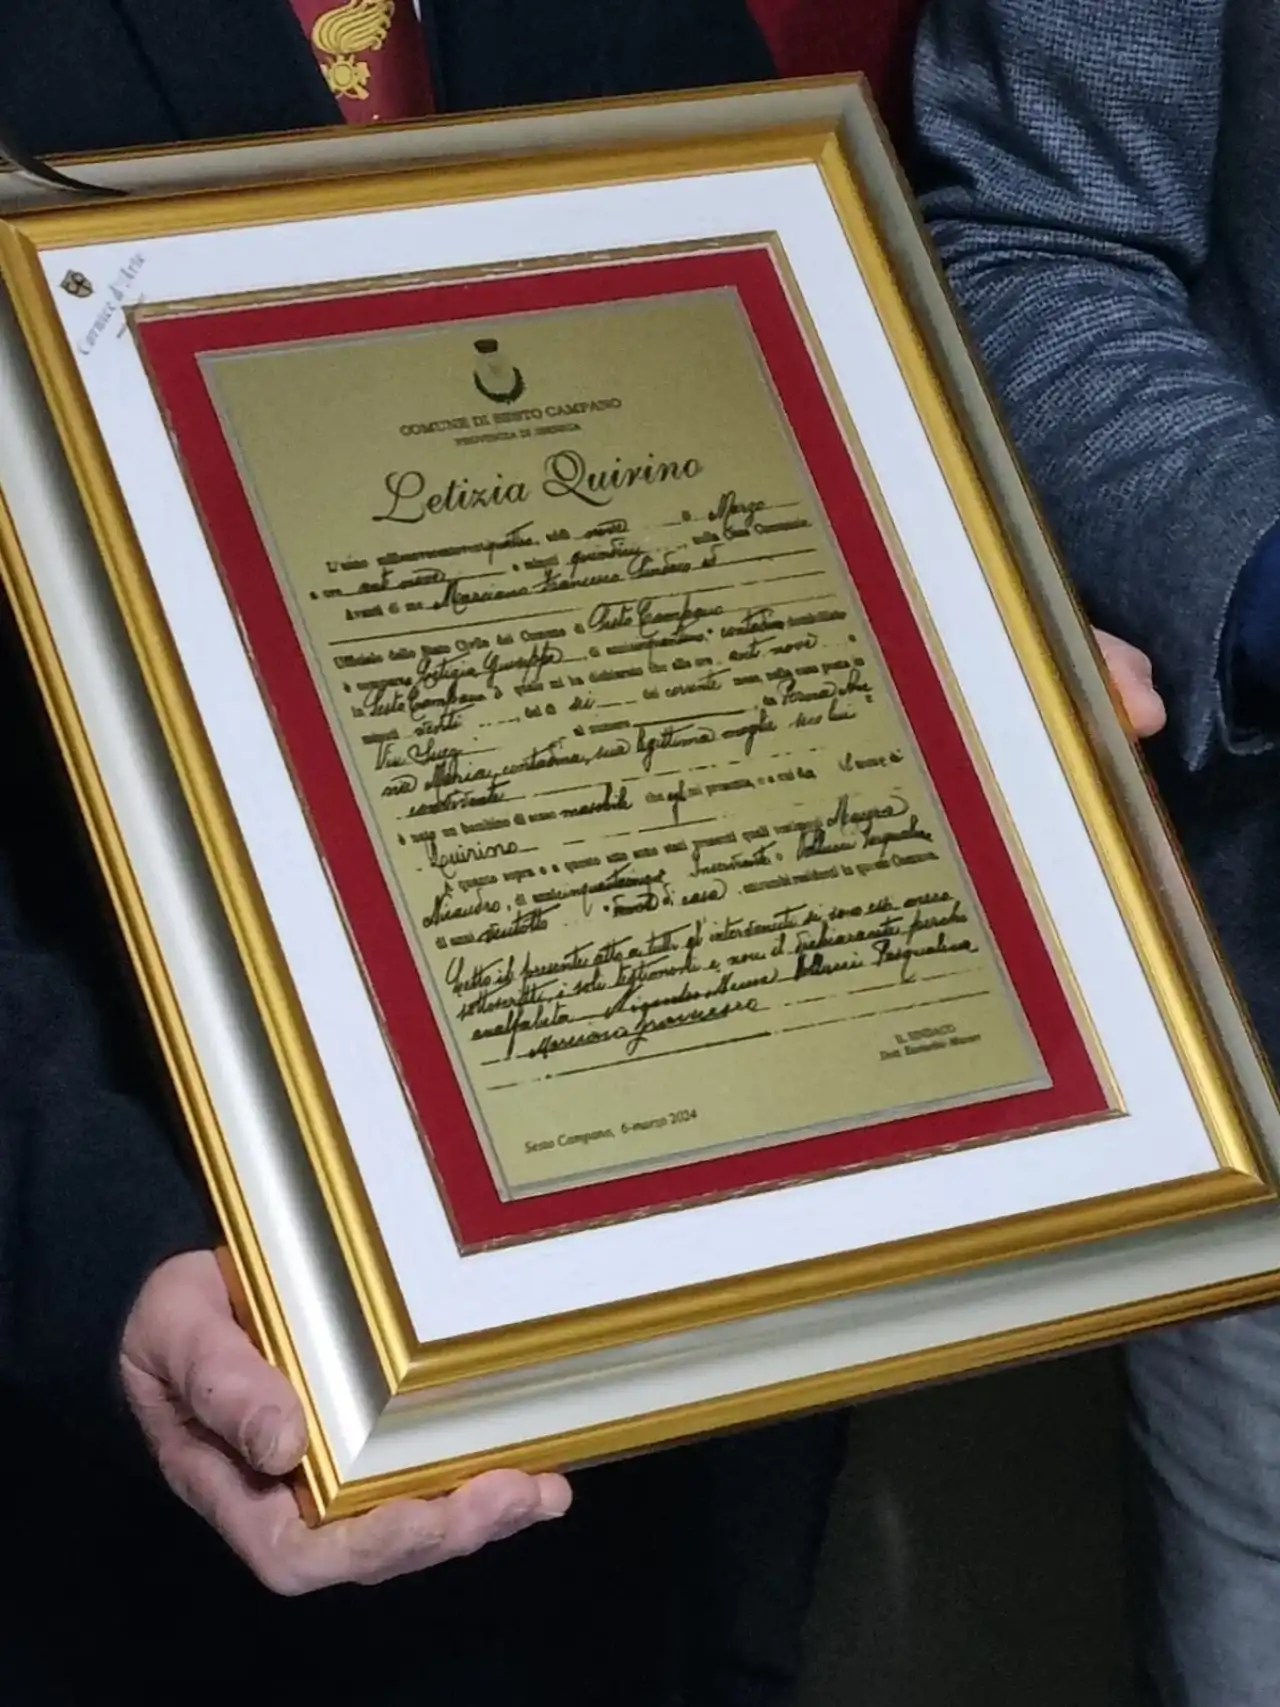 Cornice d'Arte
COMUNE DI SESTO CAMPANO
PROVINCIA DI ISERNIA
Letizia Quirino
L'anno millenovecentoventiquattro, addì nove di Marzo
a ore ant. nove e minuti quindici, nella Casa Comunale.
Avanti di me Marciano Francesco Sindaco ed
Ufficiale dello Stato Civile del Comune di Sesto Campano
è comparso Letizia Giuseppe, di anni contadino domiciliato
in Sesto Campano, il quale mi ha dichiarato che alle ore ant. nove e
minuti venti, del dì sei del corrente mese, nella casa posta in
Via al numero, da
Maria, contadina, sua legittima moglie seco lui
convivente
è nato un bambino di sesso maschile che egli mi presenta, e a cui dà il nome di
Quirino
A quanto sopra e a questo atto sono stati presenti quali testimoni
Nicandro, di anni cinquantacinque, e Pasqualina
di anni ventotto, di casa, entrambi residenti in questo Comune.
Letto il presente atto a tutti gl'intervenuti si sono essi meco
sottoscritti, i soli testimoni e non il dichiarante perché
analfabeta Pasqualina
Marciano Francesco
IL SINDACO
Dott.
Sesto Campano, 6-marzo 2024